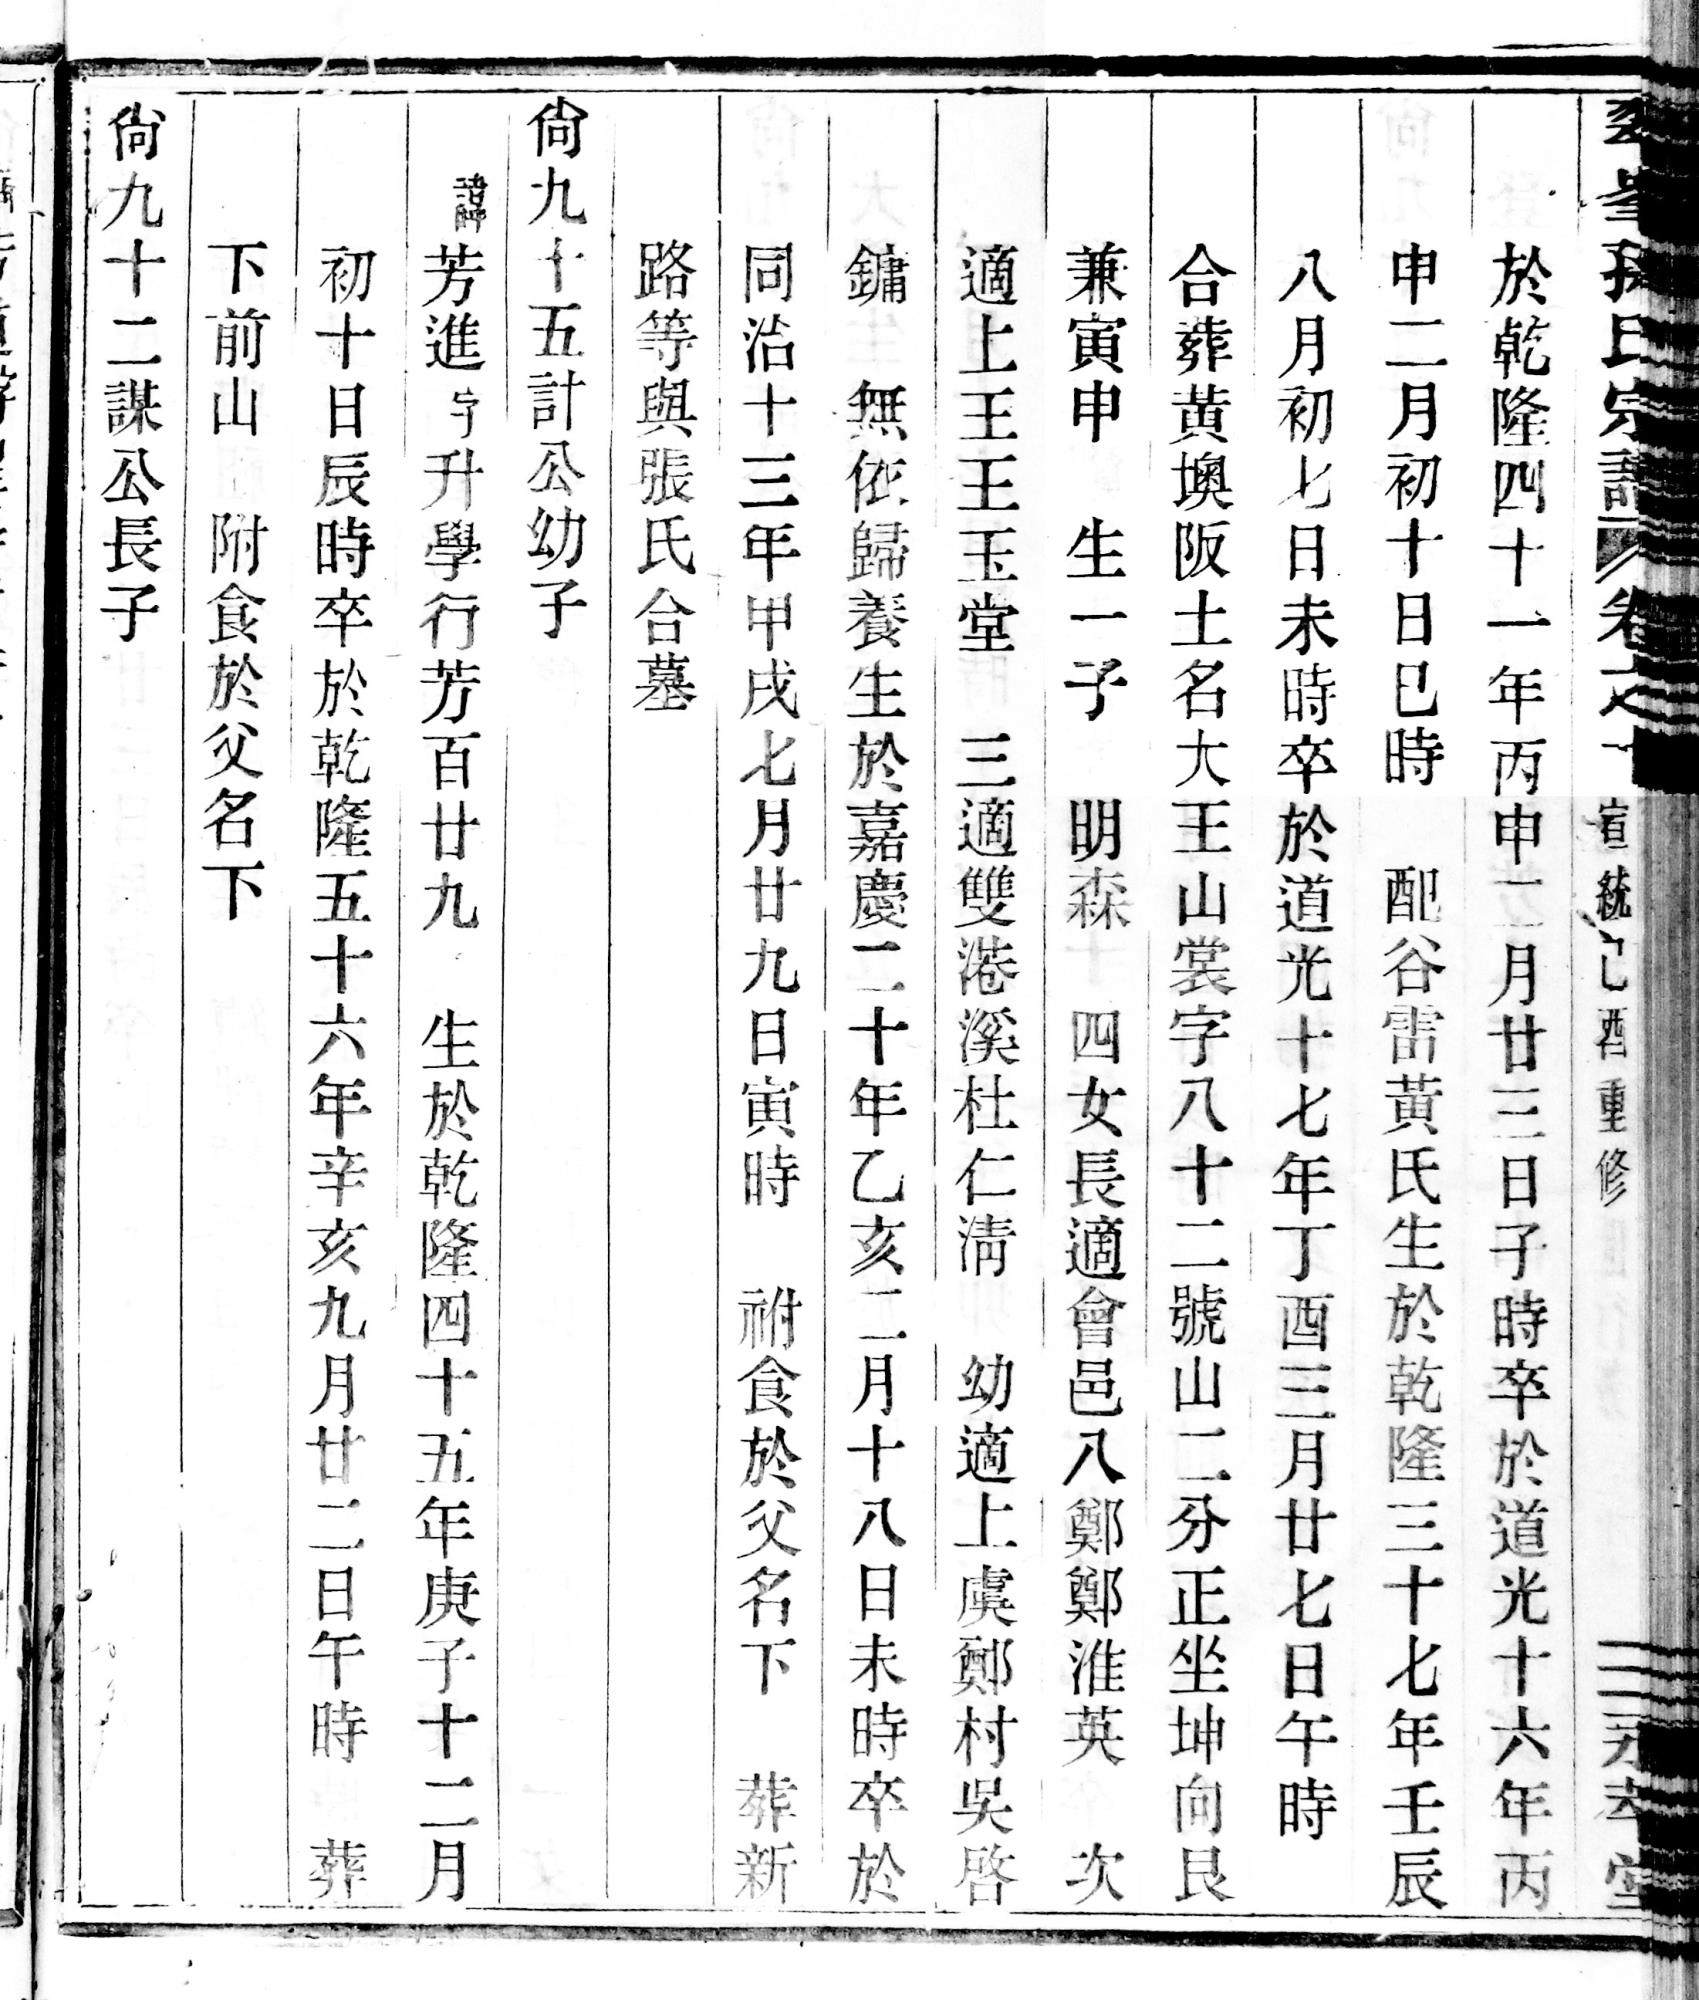 孫氏宗譜 卷之十 宣統己酉重修 堂
於乾隆四十一年丙申二月廿三日子時卒於道光十六年丙
申二月初十日巳時 配谷雷黃氏生於乾隆三十七年壬辰
八月初七日未時卒於道光十七年丁酉三月廿七日午時
合葬黃墺阪土名大王山裳字八十二號山二分正坐坤向艮
兼寅申 生一子 明森 四女長適會邑八鄭鄭淮英 次
適上王王玉堂 三適雙港溪杜仁淸 幼適上虞鄭村吳啓
鏞 無依歸養生於嘉慶二十年乙亥二月十八日未時卒於
同治十三年甲戌七月廿九日寅時 祔食於父名下 葬新
路等與張氏合墓
尙九十五計公幼子
諱芳進字升學行芳百廿九 生於乾隆四十五年庚子十二月
初十日辰時卒於乾隆五十六年辛亥九月廿二日午時 葬
下前山 附食於父名下
尙九十二謀公長子